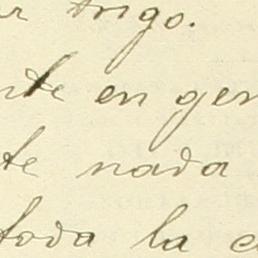 r trigo.
nte en gen
te nada
toda la c